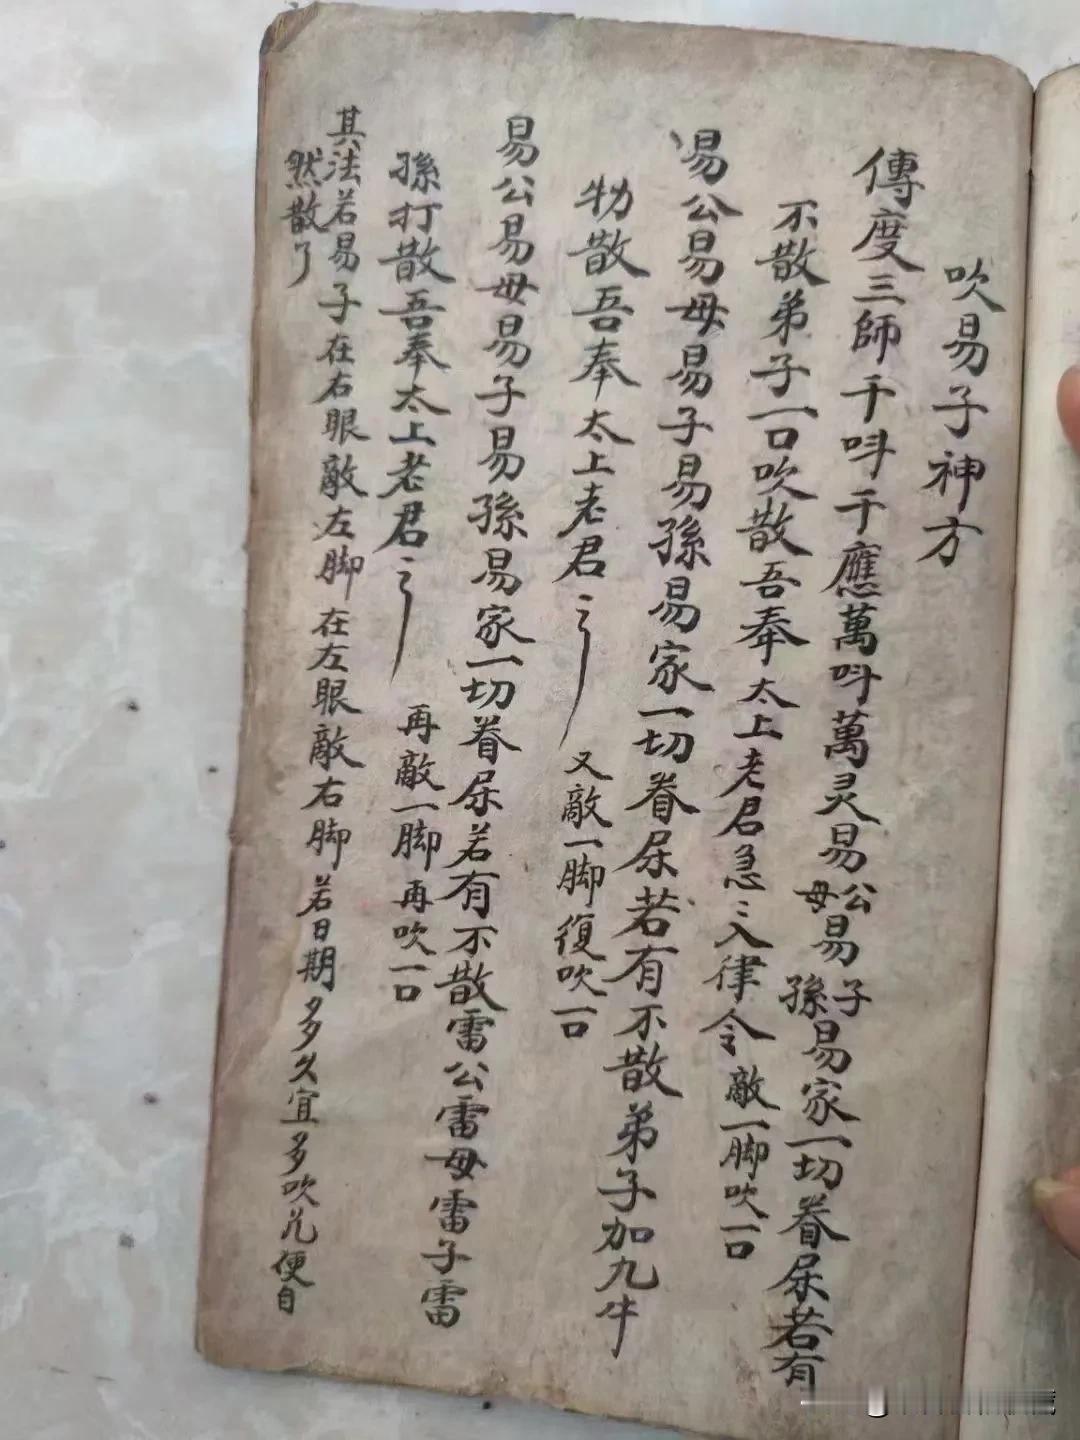 吹易子神方
傳度三師千呌千應萬呌萬灵易公母易子孫易家一切眷屎若有
不散弟子一口吹散吾奉太上老君急〻入律令敵一脚吹一口
易公易母易子易孫易家一切眷屎若有不散弟子加九牛
牞散吾奉太上老君〻又敵一脚復吹一口
易公易母易子易孫易家一切眷屎若有不散雷公雷母雷子雷
孫打散吾奉太上老君〻再敵一脚再吹一口
其法若易子在右眼敵左脚在左眼敵右脚若日期多久宜多吹几便自
然散了